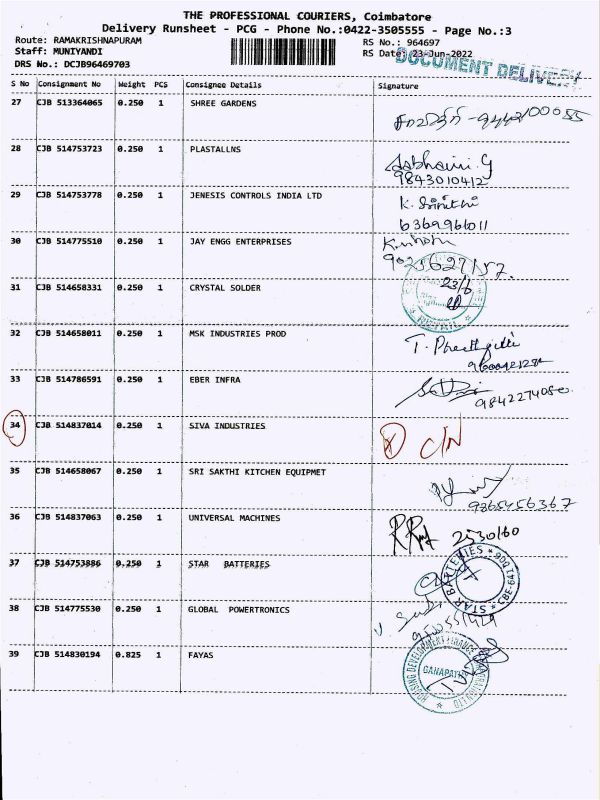 THE PROFESSIONAL COURIERS, Coimbatore
Delivery Runsheet - PCG - Phone No.:0422-3505555 - Page No.:3
Route: RAMAKRISHNAPURAM RS No.: 964697
Staff: MUNIYANDI RS Date: 23-Jun-2022
DRS No.: DCJB96469703 DOCUMENT DELIVERY
S No Consignment No Weight PCS Consignee Details Signature
27 CJB 513364065 0.250 1 SHREE GARDENS
28 CJB 514753723 0.250 1 PLASTALLNS
9843010412
29 CJB 514753778 0.250 1 JENESIS CONTROLS INDIA LTD K. Srinithi
6369966011
30 CJB 514775510 0.250 1 JAY ENGG ENTERPRISES
31 CJB 514658331 0.250 1 CRYSTAL SOLDER 23/6
32 CJB 514658011 0.250 1 MSK INDUSTRIES PROD
33 CJB 514786591 0.250 1 EBER INFRA
34 CJB 514837014 0.250 1 SIVA INDUSTRIES C/N
35 CJB 514658067 0.250 1 SRI SAKTHI KITCHEN EQUIPMET
9365456367
36 CJB 514837063 0.250 1 UNIVERSAL MACHINES 2530160
37 CJB 514753886 0.250 1 STAR BATTERIES STAR BATTERIES
38 CJB 514775530 0.250 1 GLOBAL POWERTRONICS
39 CJB 514830194 0.825 1 FAYAS HOUSING DEVELOPMENT FINANCE
GANAPATHY